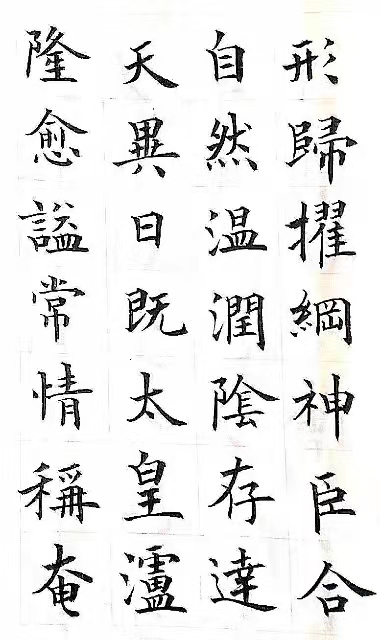 形歸擢綱神臣合
自然温潤陰存達
天異日既太皇瀘
隆愈謚常情稱奄